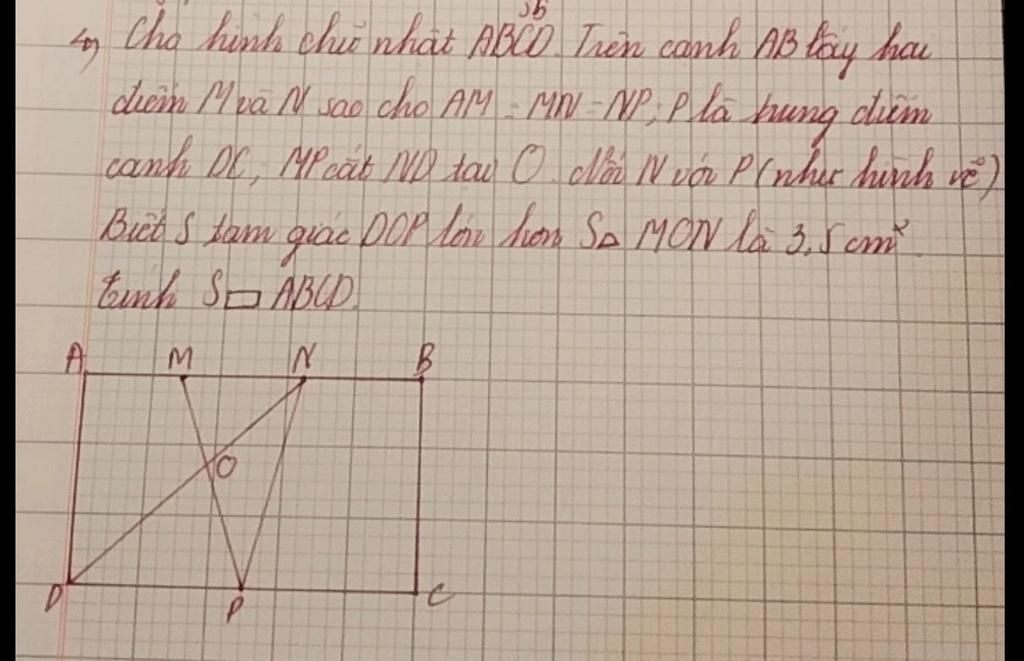 4) Cho hình chữ nhật ABCD. Trên cạnh AB lấy hai
điểm M và N sao cho AM = MN = NP; P là trung điểm
cạnh DC, MP cắt ND tại O. Nối N với P (như hình vẽ)
Biết S tam giác DOP lớn hơn S△ MON là 3,5 cm².
tính S▭ ABCD.
A M N B
O
D P C